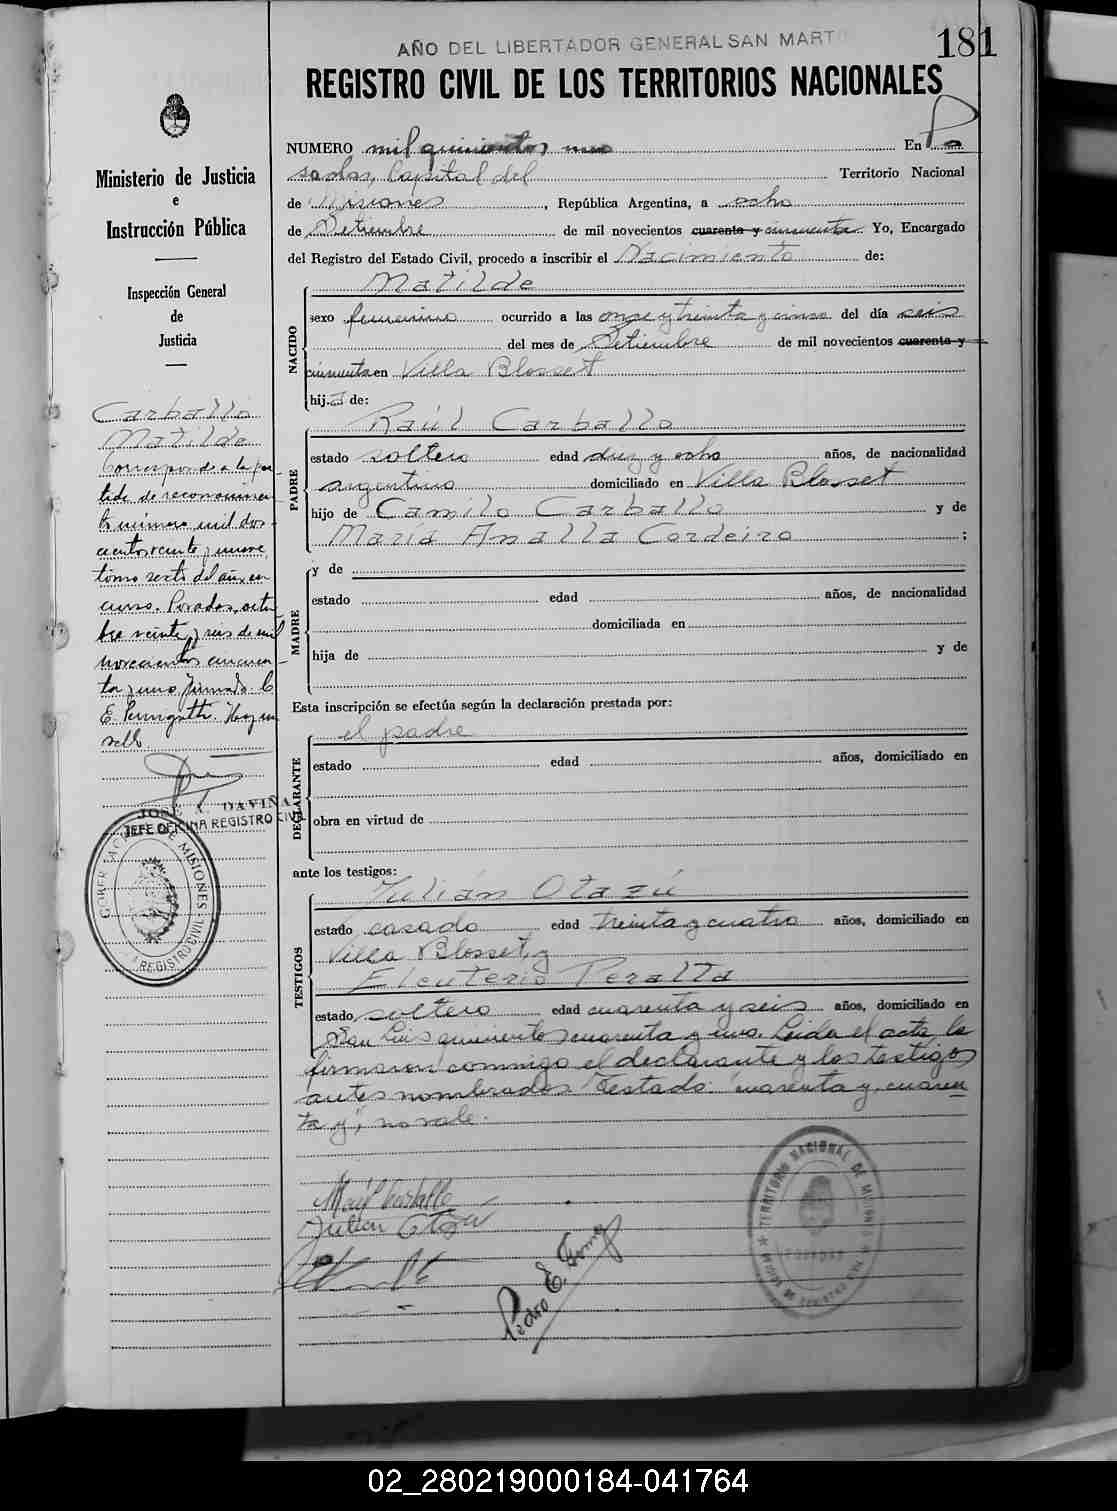 AÑO DEL LIBERTADOR GENERAL SAN MART
181
REGISTRO CIVIL DE LOS TERRITORIOS NACIONALES
Ministerio de Justicia
e
Instrucción Pública
Inspección General
de
Justicia
Carballo
Matilde
Corresponde a la par
tida de reconocimien
to número mil dos
cientos veinte y nueve,
tomo sexto del año en
curso. Posadas, octu
bre veinte y seis de mil
novecientos cincuen
ta y uno. Firmado. C.
E. Hay un
sello
JOSE A. DAVIÑA
JEFE OFICINA REGISTRO CIVIL
NUMERO mil quinientos uno En Po
sadas, Capital del Territorio Nacional
de Misiones, República Argentina, a ocho
de Setiembre de mil novecientos cuarenta y cincuenta Yo, Encargado
del Registro del Estado Civil, procedo a inscribir el Nacimiento de:
NACIDO
Matilde
sexo femenino ocurrido a las once y treinta y cinco del día seis
del mes de Setiembre de mil novecientos cuarenta y
cincuenta en Villa Blosset
hija de:
PADRE
Raúl Carballo
estado soltero edad diez y ocho años, de nacionalidad
argentino domiciliado en Villa Blosset
hijo de Camilo Carballo y de
María Analia Cordeiro ;
MADRE
y de
estado edad años, de nacionalidad
domiciliada en
hija de y de
Esta inscripción se efectúa según la declaración prestada por:
DECLARANTE
el padre
estado edad años, domiciliado en
obra en virtud de
ante los testigos:
TESTIGOS
Julián Otazú
estado casado edad treinta y cuatro años, domiciliado en
Villa Blosset, y
Eleuterio Peralta
estado soltero edad cuarenta y seis años, domiciliado en
San Luis quinientos cuarenta y uno. Leida el acta, la
firmaron conmigo el declarante y los testigos
antes nombrados. Testado: "cuarenta y, cuaren
ta y", no vale.
Raúl Carballo
Julian Otazú
Pedro E. Gomez
TERRITORIO NACIONAL DE MISIONES
POSADAS
GOBERNACION DE MISIONES
REGISTRO CIVIL
02_280219000184-041764